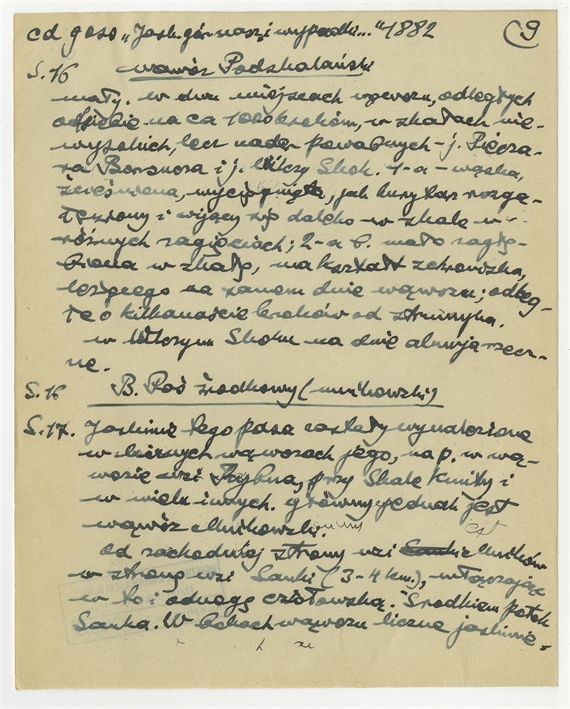 cd goso „Jask. gór naszej wypadki..." 1882
9
S. 16 wąwóz Podskalański
mały. w dwu miejscach wąwozu, odległych
od siebie na ca 1000 kroków, w skałach nie-
wysokich, lecz nader powabnych - j. Piecza-
ra Borsucza i j. Wilczy Skok. 1-a - wąska,
ścieśniona, wyciągnięta, jak kurytarz rozgą-
łęziony i wijący się daleko w skale w
różnych zagięciach; 2-a b. mało zagłę-
biona w skałę, na kształt schroniska,
leżącego na samem dnie wąwozu; odleg-
łe o kilkanaście kroków od strumyka.
w Wilczym Skoku na dnie aluwja rzecz-
ne.
S. 16 B. Pas środkowy (mnikowski)
S. 17. Jaskinie tego pasa zostały wynalezione
w licznych wąwozach jego, na p. w wą-
wozie wsi przy Skale Kmity i
w wielu innych. główny jednak jest
wąwóz Mnikowski.
od zachodniej strony wsi Mników
w stronę wsi Sanki (3-4 km.), włączając
w to i odnogę czółowską. Środkiem potok
Sanka. W bokach wąwozu liczne jaskinie